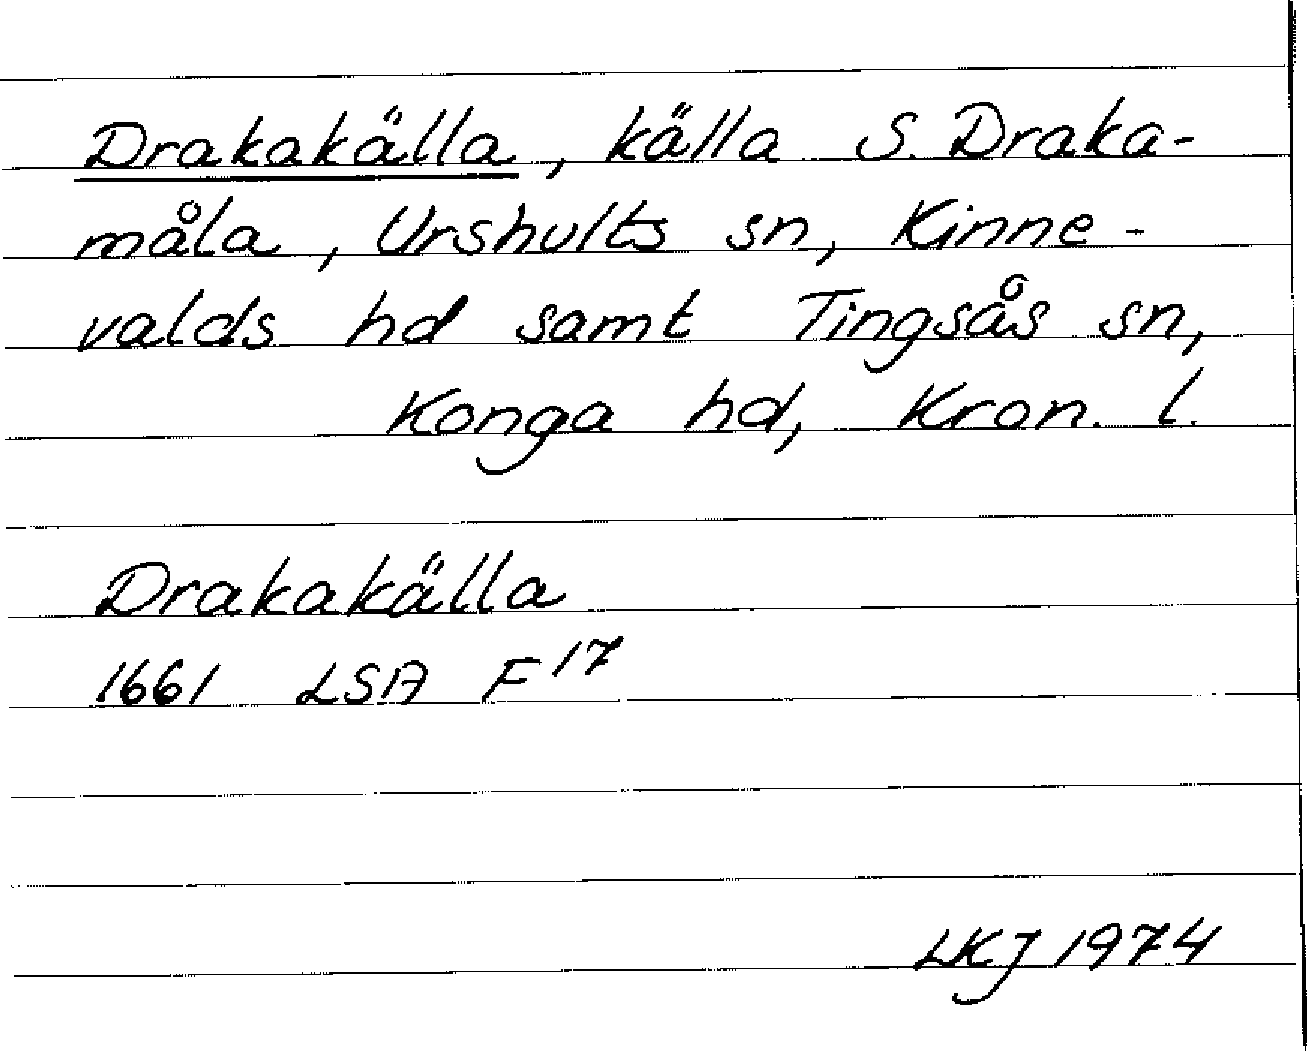 Drakakälla, källa S. Draka-
måla, Urshults sn, Kinne-
valds hd samt Tingsås sn,
Konga hd, Kron. l.
Drakakälla
1661 LSA F17
LKJ 1974